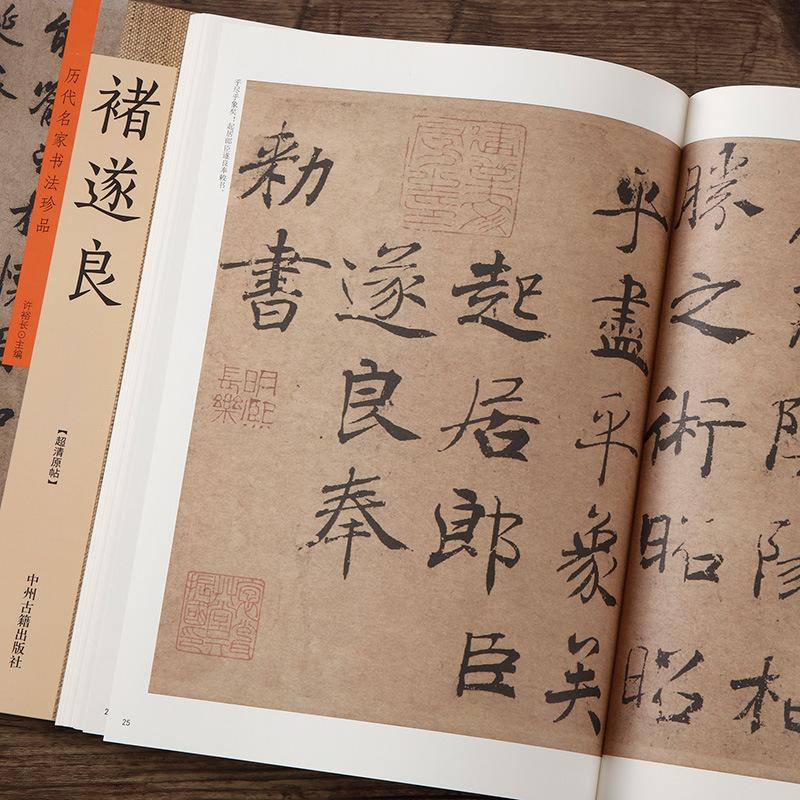 历代名家书法珍品
褚遂良
许裕长⊙主编
【超清原帖】
中州古籍出版社
陰陽相
勝之術昭昭
乎盡乎象矣
起居郎臣
遂良奉
勑書
明熙
長樂
乎尽乎象矣！起居郎臣遂良奉敕书。
25